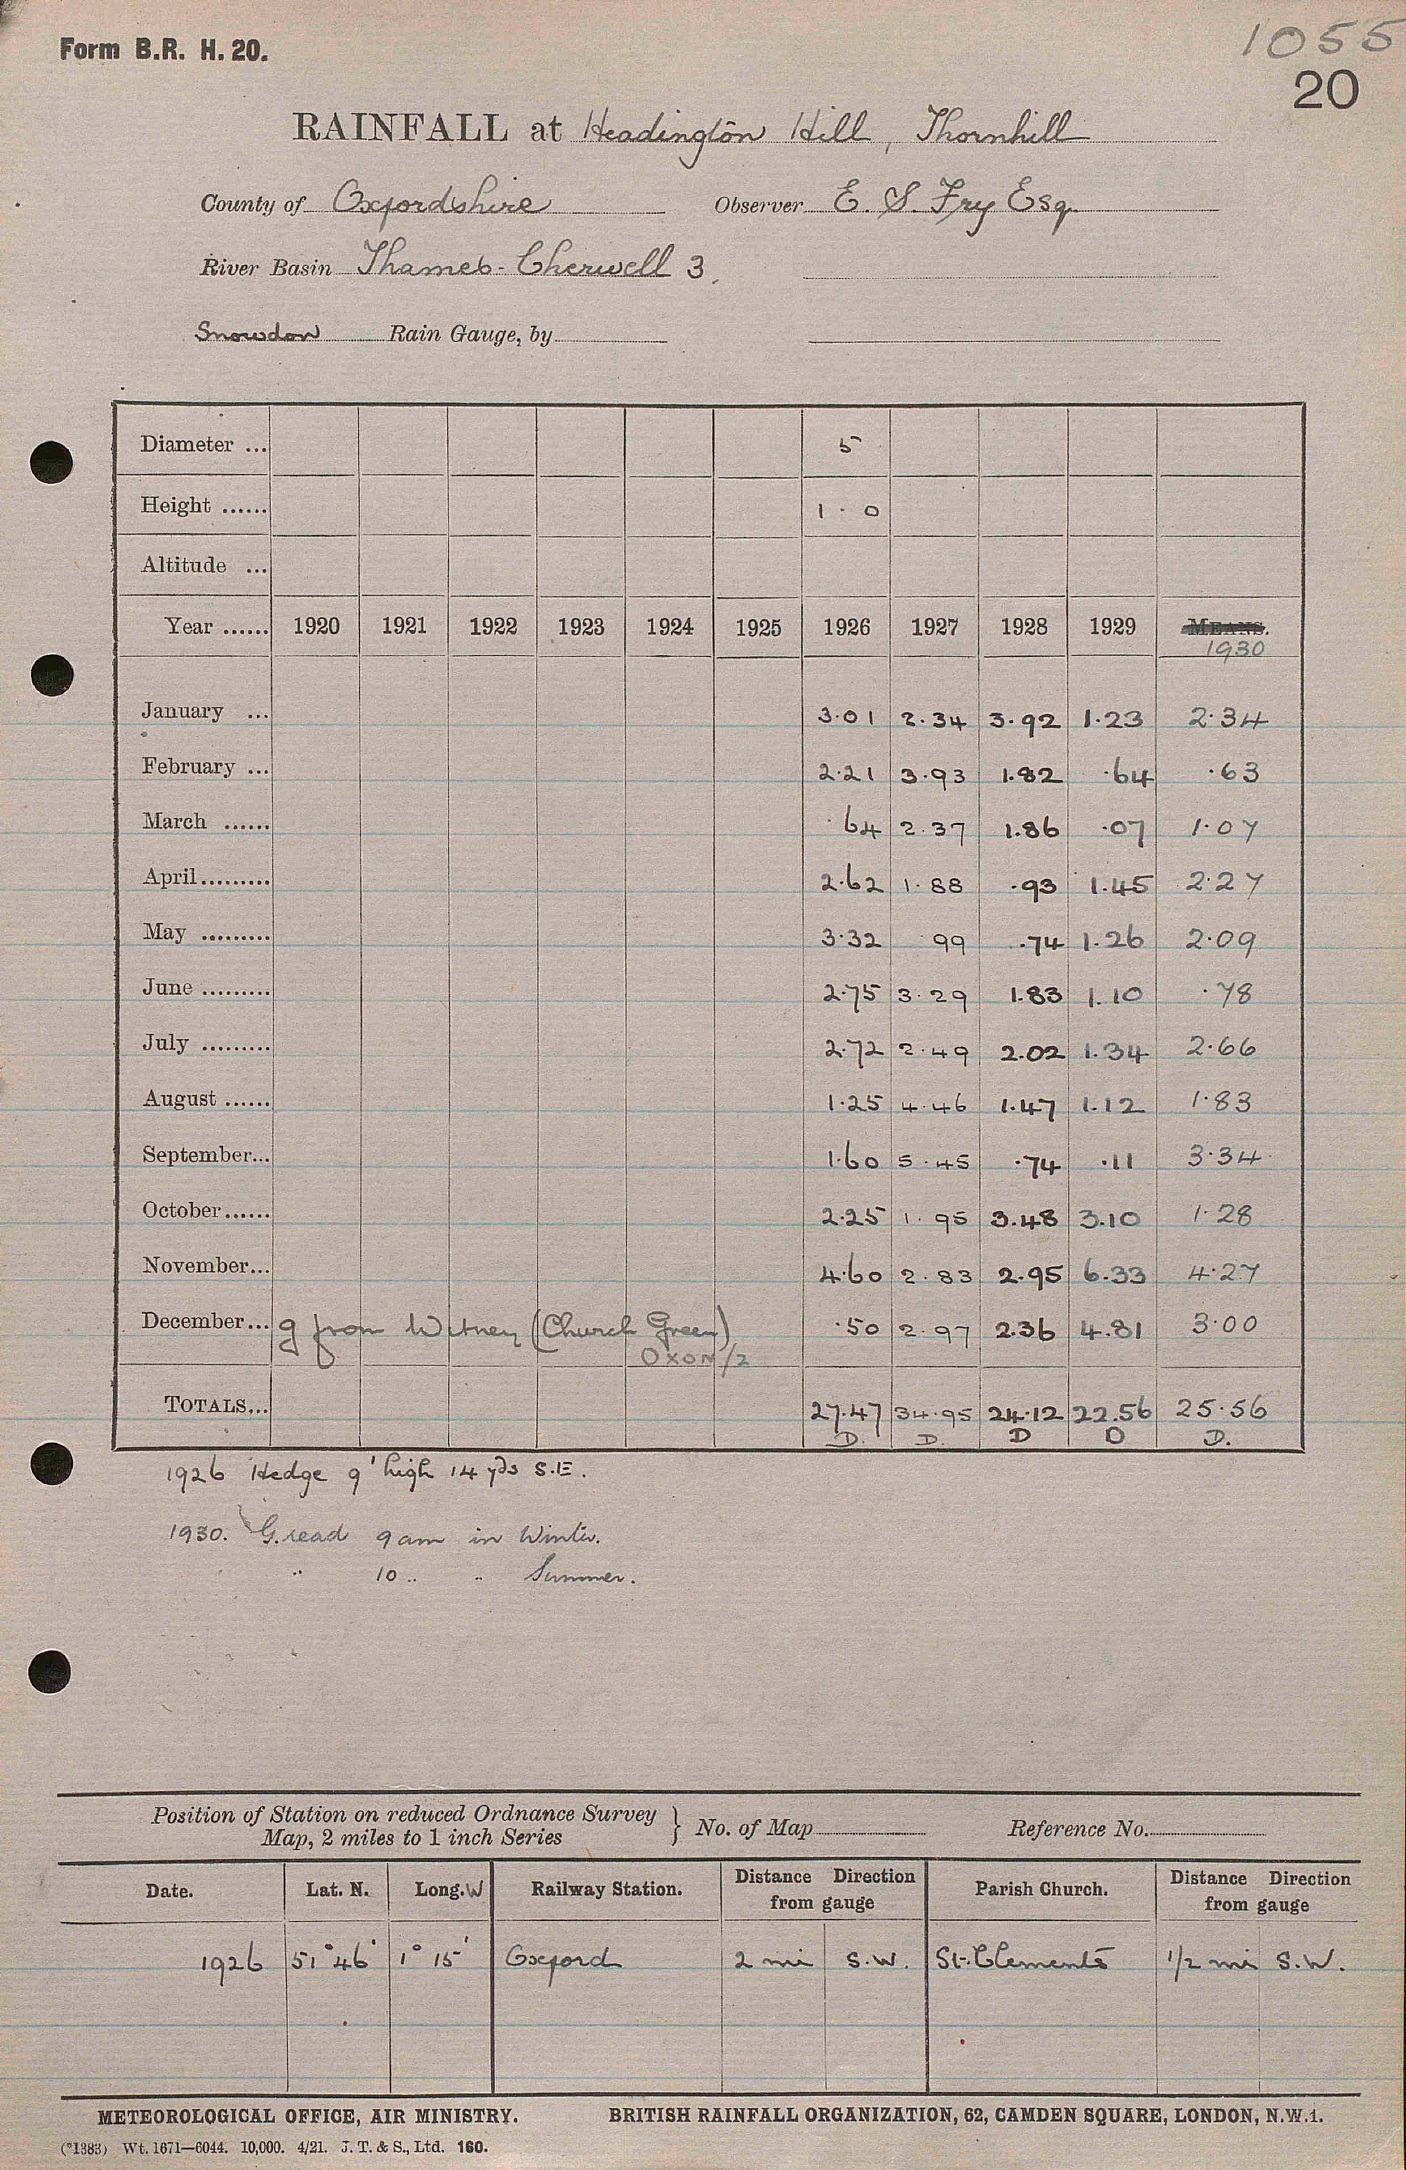 Form B.R. H. 20.
1055
20
RAINFALL at Headington Hill, Thornhill
County of Oxfordshire Observer E. S. Fry Esq.
River Basin Thames - Cherwell 3
Snowdon Rain Gauge, by
Diameter ... 5
Height ...... 1 . 0
Altitude ...
Year ...... 1920 1921 1922 1923 1924 1925 1926 1927 1928 1929 MEANS.
1930
January ... 3.01 2.34 3.92 1.23 2.34
February ... 2.21 3.93 1.82 .64 .63
March ...... .64 2.37 1.86 .07 1.07
April......... 2.62 1.88 .93 1.45 2.27
May ......... 3.32 99 .74 1.26 2.09
June ......... 2.75 3.29 1.83 1.10 .78
July ......... 2.72 2.49 2.02 1.34 2.66
August ...... 1.25 4.46 1.47 1.12 1.83
September... 1.60 5.45 .74 .11 3.34
October...... 2.25 1.95 3.48 3.10 1.28
November... 4.60 2.83 2.95 6.33 4.27
December... g from Witney (Church Green) .50 2.97 2.36 4.81 3.00
OXON/2
TOTALS... 27.47 34.95 24.12 22.56 25.56
D. D. D D D.
1926 Hedge 9' high 14 yds S.E.
1930. G. read 9 am in Winter.
" 10 " " Summer.
Position of Station on reduced Ordnance Survey
Map, 2 miles to 1 inch Series } No. of Map Reference No.
Date. Lat. N. Long. W Railway Station. Distance Direction from gauge Parish Church. Distance Direction from gauge
1926 51° 46' 1° 15' Oxford 2 mi S.W. St. Clements 1/2 mi S.W.
METEOROLOGICAL OFFICE, AIR MINISTRY. BRITISH RAINFALL ORGANIZATION, 62, CAMDEN SQUARE, LONDON, N.W.1.
(*1383) Wt. 1671—6044. 10,000. 4/21. J. T. & S., Ltd. 160.